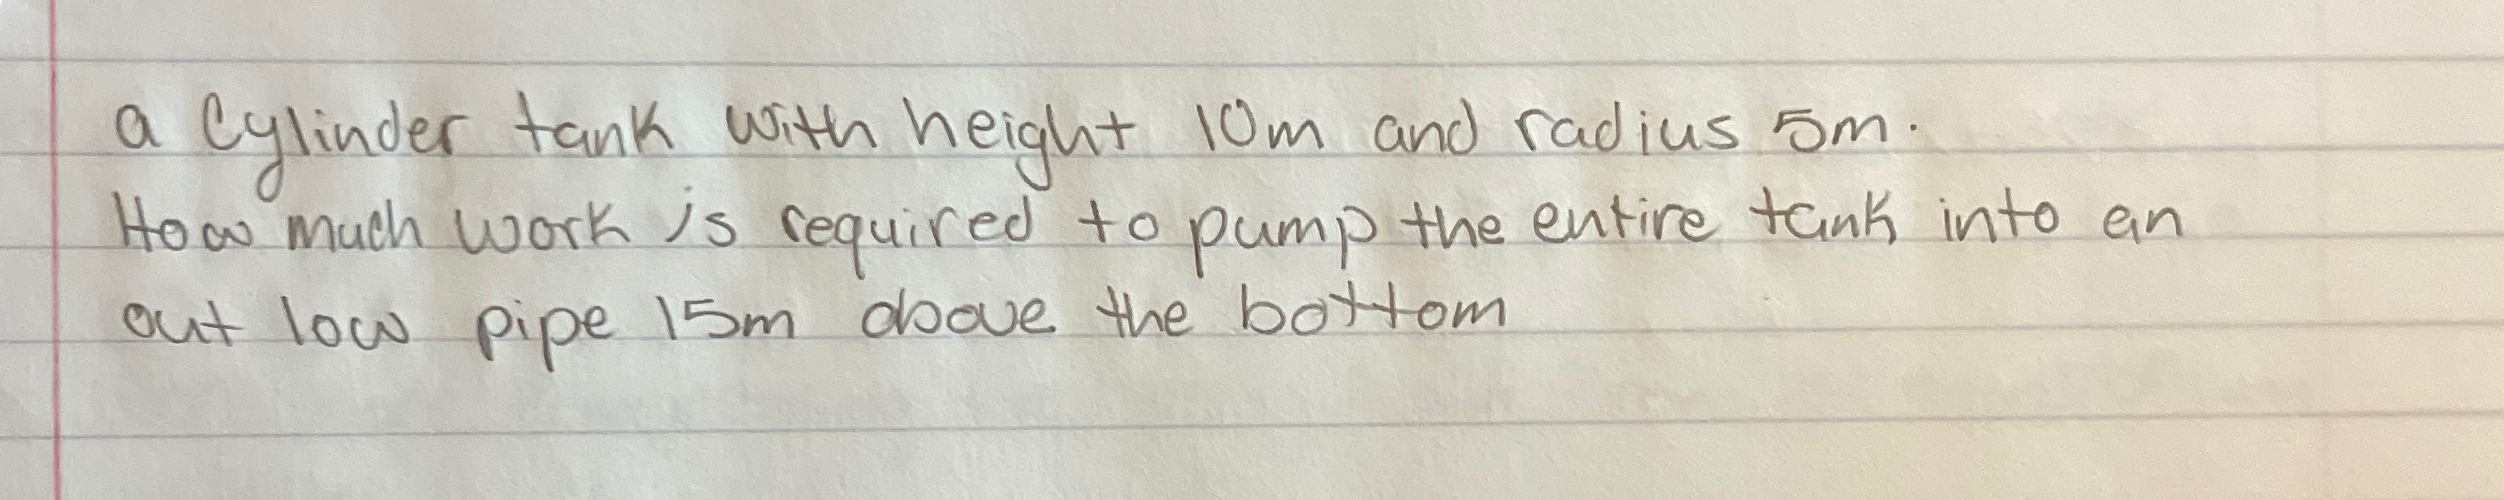 a Cylinder tank with height 10m and radius 5m.
How much work is required to pump the entire tank into an
out low pipe 15m above the bottom